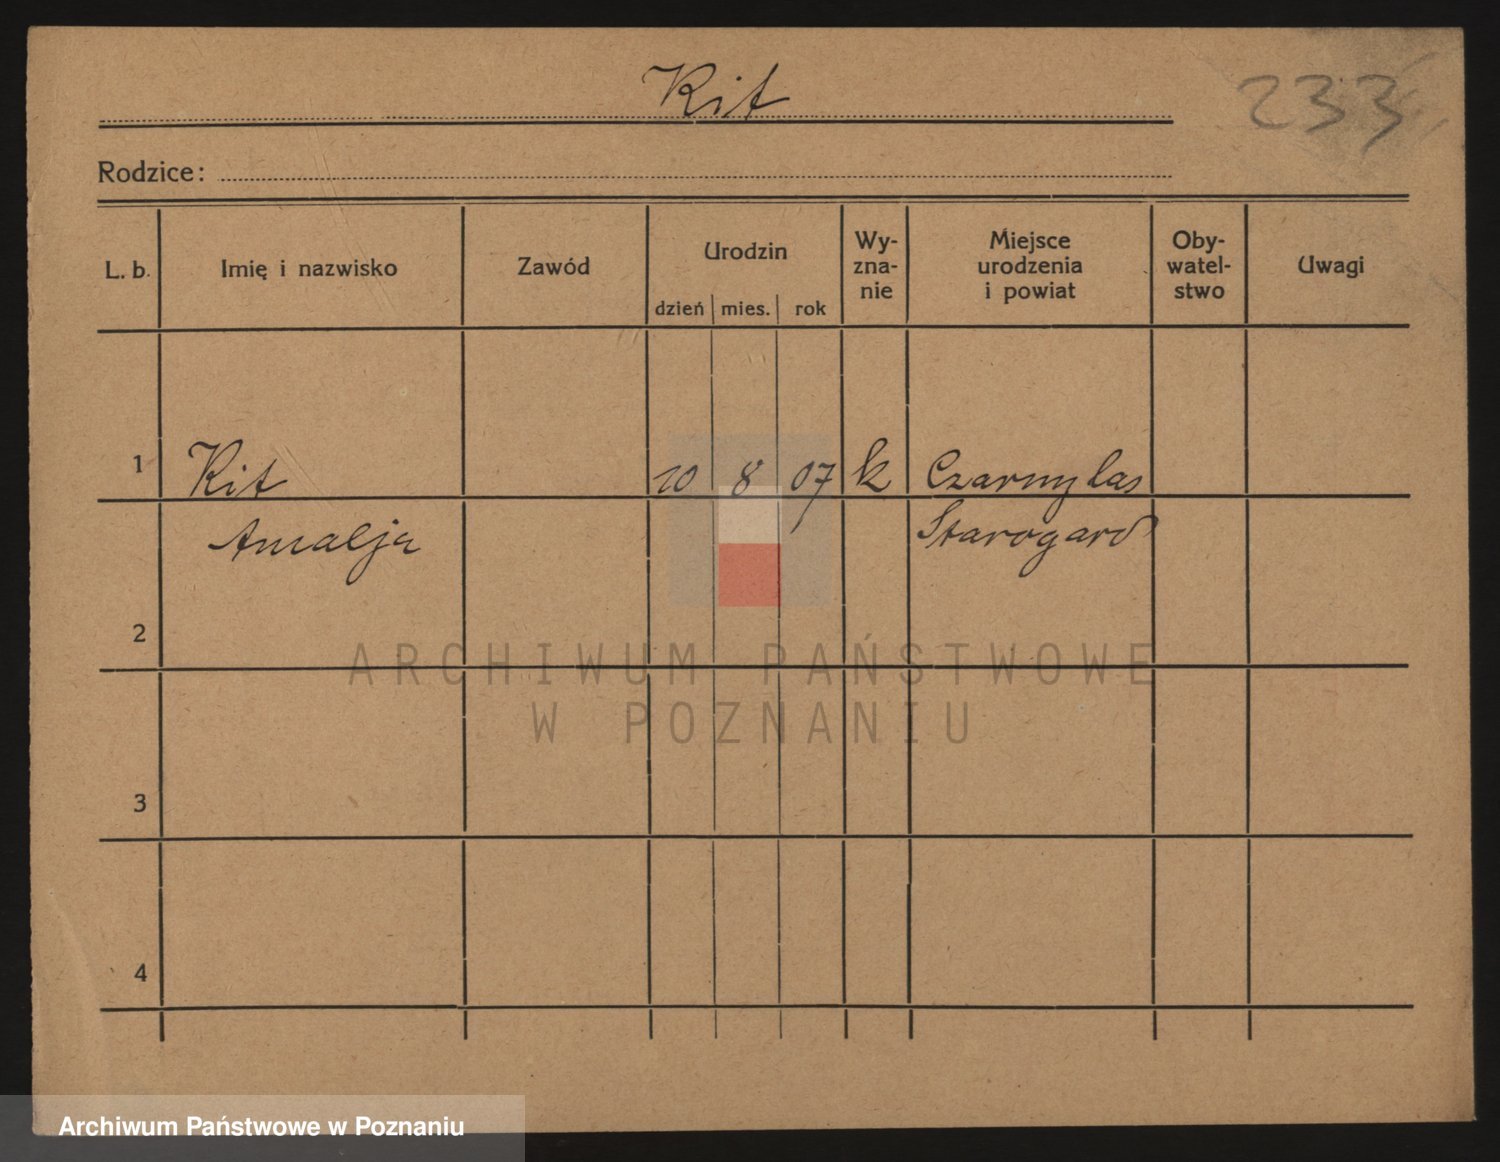 Kit
233
Rodzice:
L. b.
Imię i nazwisko
Zawód
Urodzin
dzień mies. rok
Wy-
zna-
nie
Miejsce
urodzenia
i powiat
Oby-
watel-
stwo
Uwagi
1 Kit 10 8 07 k Czarnylas
Amalja Starogard
2
3
4
ARCHIWUM PAŃSTWOWE
W POZNANIU
Archiwum Państwowe w Poznaniu